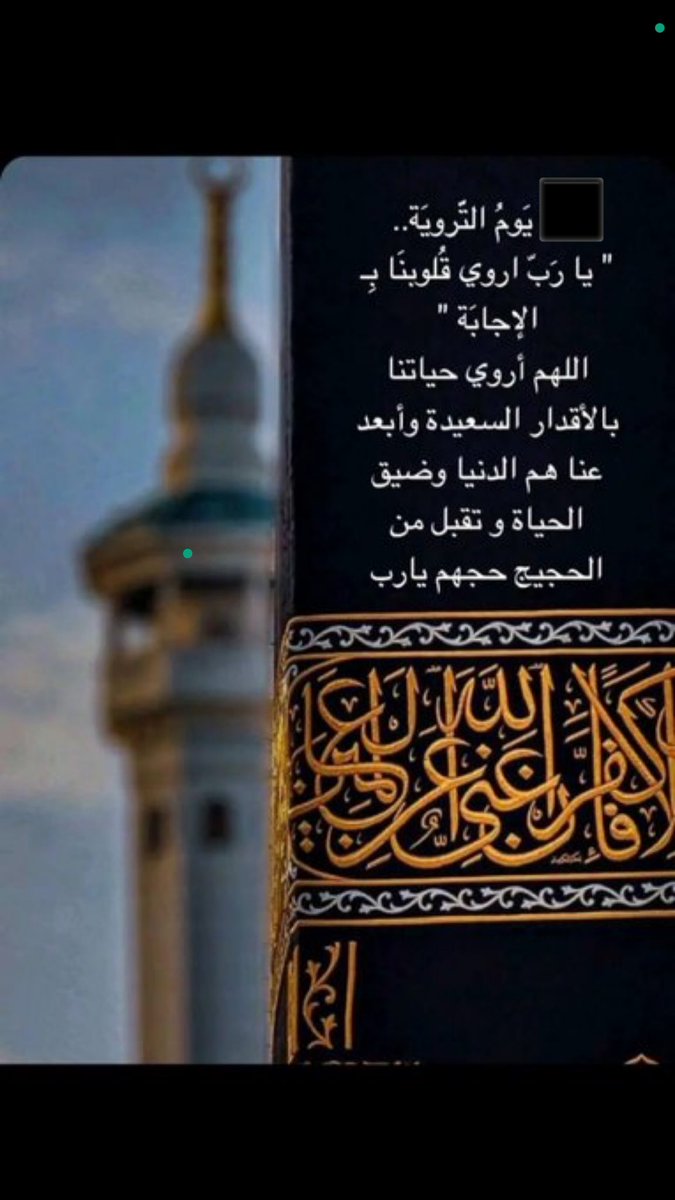 يَومُ التَّرويَة..
" يا رَبّ اروي قُلوبنَا بِـ
الإجابَة "
اللهم أروي حياتنا
بالأقدار السعيدة وأبعد
عنا هم الدنيا وضيق
الحياة و تقبل من
الحجيج حجهم يارب
كفر فإن الله غني عن العالمين